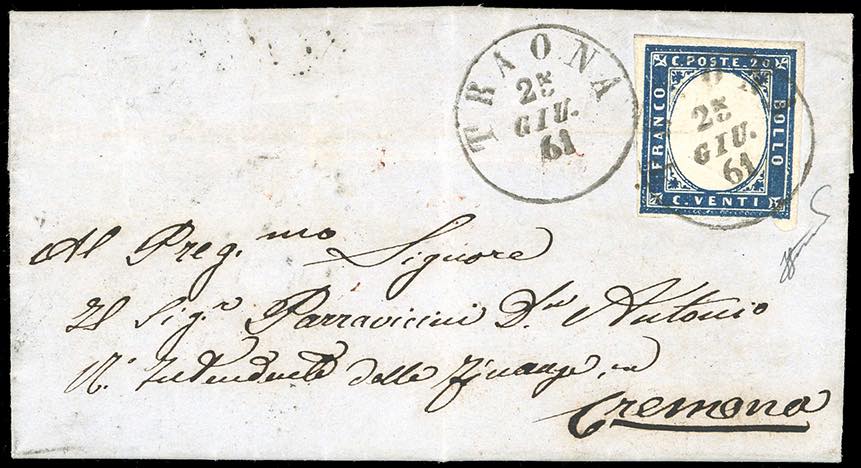 TRAONA
25
GIU.
61
C. POSTE. 20
FRANCO
BOLLO
C. VENTI
25
GIU.
61
Al Preg.mo Signore
Il Sig.r Parravicini D.n Antonio
R. Intendente delle Finanze in
Cremona